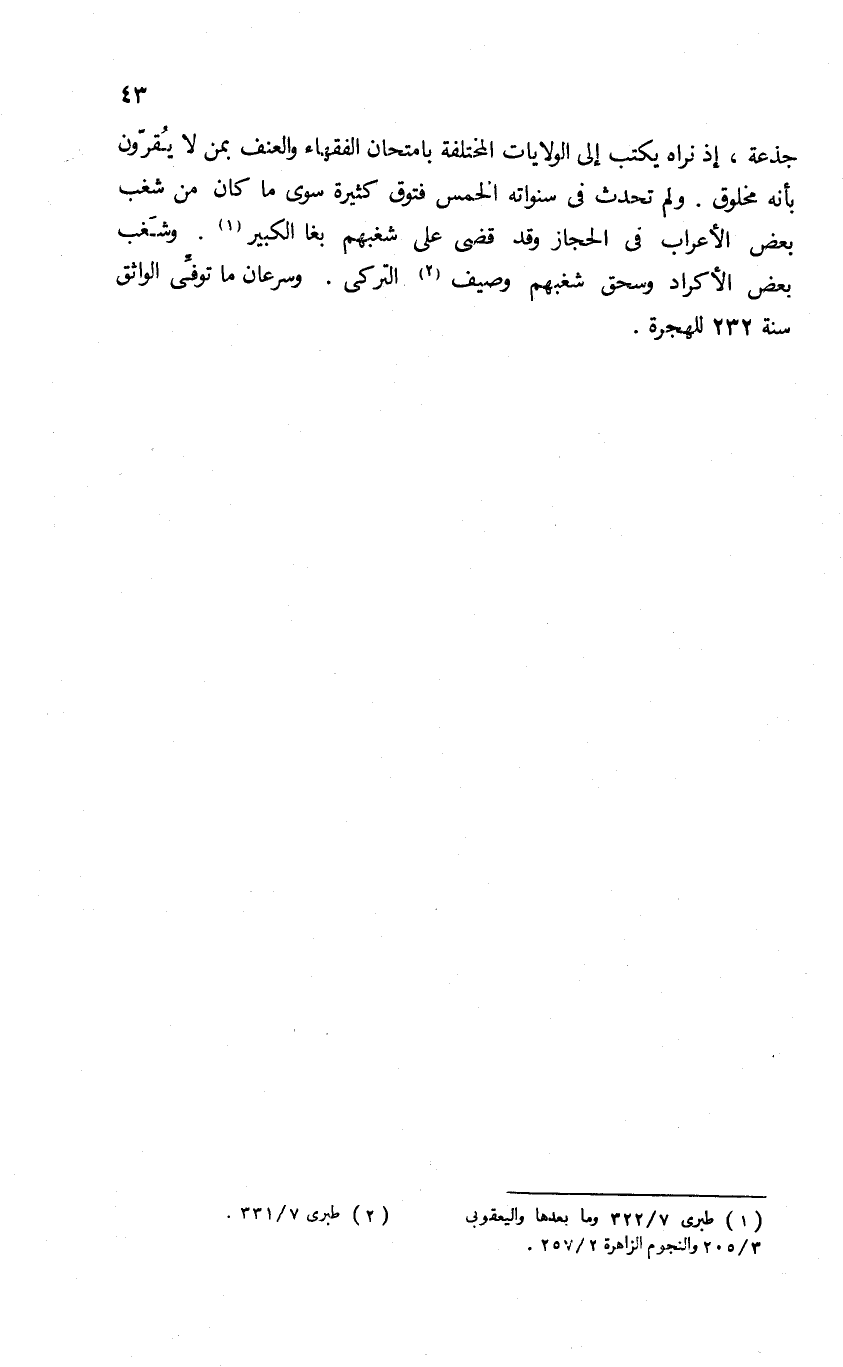 ٤٣
جذعة ، إذ نراه يكتب إلى الولايات المختلفة بامتحان الفقهاء والعنف بمن لا يُقرّون
بأنه مخلوق . ولم تحدث فى سنواته الخمس فتوق كثيرة سوى ما كان من شغب
بعض الأعراب فى الحجاز وقد قضى على شغبهم بغا الكبير (١) . وشَغب
بعض الأكراد وسحق شغبهم وصيف (٢) التركى . وسرعان ما توفِّى الواثق
سنة ٢٣٢ للهجرة .
( ١ ) طبرى ٣٢٢/٧ وما بعدها واليعقوبى
٢٠٥/٣ والنجوم الزاهرة ٢٥٧/٢ .
( ٢ ) طبرى ٣٣١/٧ .